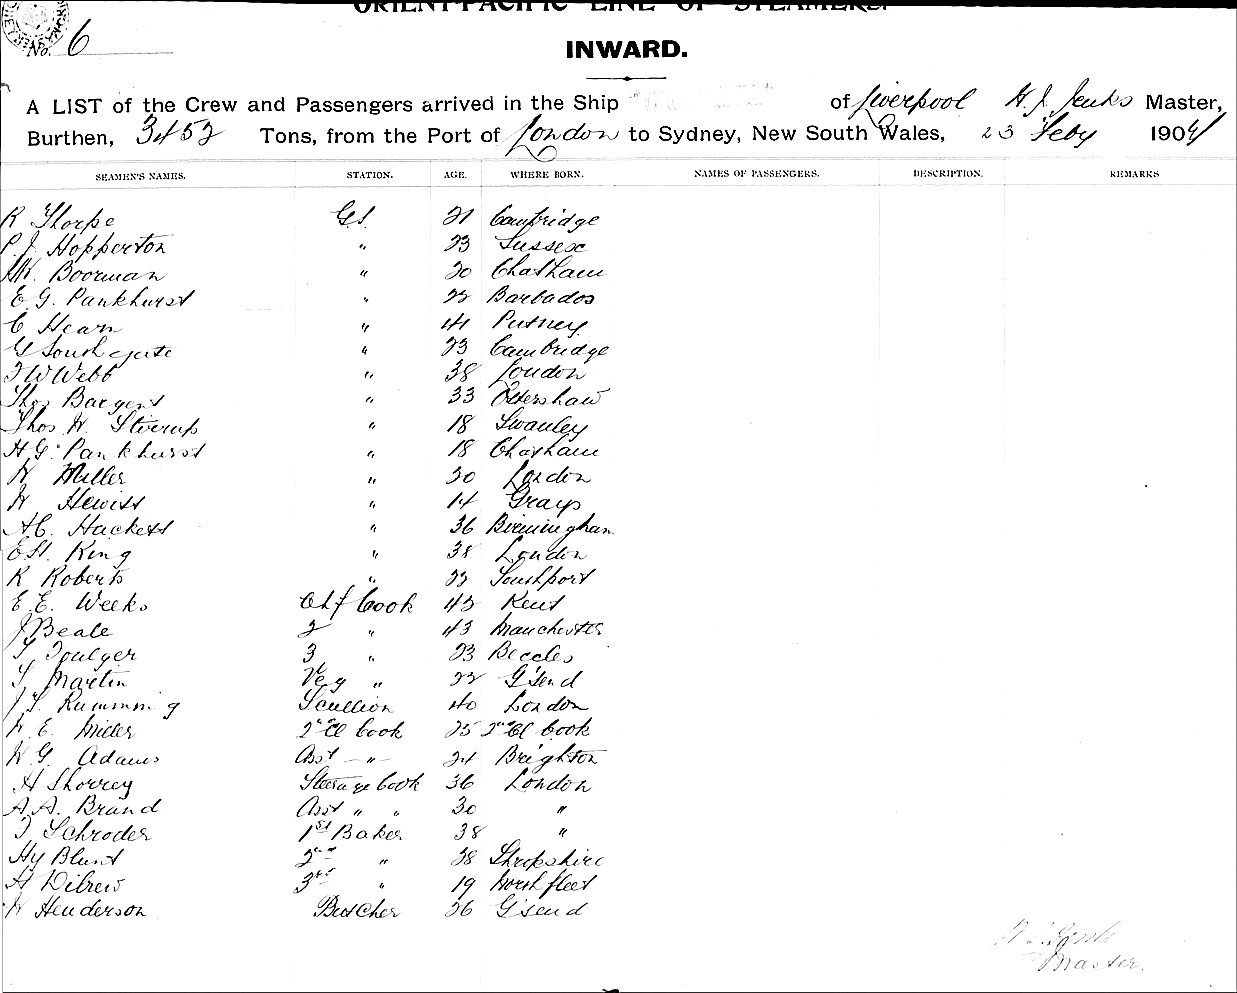 ORIENT-PACIFIC LINE OF STEAMERS.
No. 6
INWARD.
A LIST of the Crew and Passengers arrived in the Ship of Liverpool H. J. Jenks Master,
Burthen, 3452 Tons, from the Port of London to Sydney, New South Wales, 23 Feby 1904
SEAMEN'S NAMES. STATION. AGE. WHERE BORN. NAMES OF PASSENGERS. DESCRIPTION. REMARKS
R Thorpe G.S. 21 Cambridge
P. J. Hopperton " 23 Sussex
Boorman " 20 Chatham
E G. Pankhurst " 22 Barbados
C Hearn " 41 Putney
G Southgate " 23 Cambridge
T W Webb " 38 London
Thos Bargent " 33 Ottershaw
Thos W. Stirrup " 18 Swanley
H G. Pankhurst " 18 Chatham
W Miller " 30 London
W Hewitt " 14 Grays
A C. Hackett " 36 Birmingham
E H. King " 38 London
R Roberts " 22 Southport
E E. Weeks Chf Cook 42 Kent
J Beale 2 " 43 Manchester
T Foulger 3 " 23 Beccles
T Martin Veg " 22 G'send
J T. Rumming Scullion 40 London
W E. Miller 2nd Cl Cook 25 2nd Cl Cook
W G. Adams Asst — " — 24 Brighton
H Shorrey Steerage Cook 36 London
A A. Brand Asst " " 30 "
T Schroder 1st Baker 38 "
Hy Blunt 2nd " 28 Shropshire
H Dibrew 3rd " 19 Northfleet
W Henderson Butcher 26 G'send
Master.